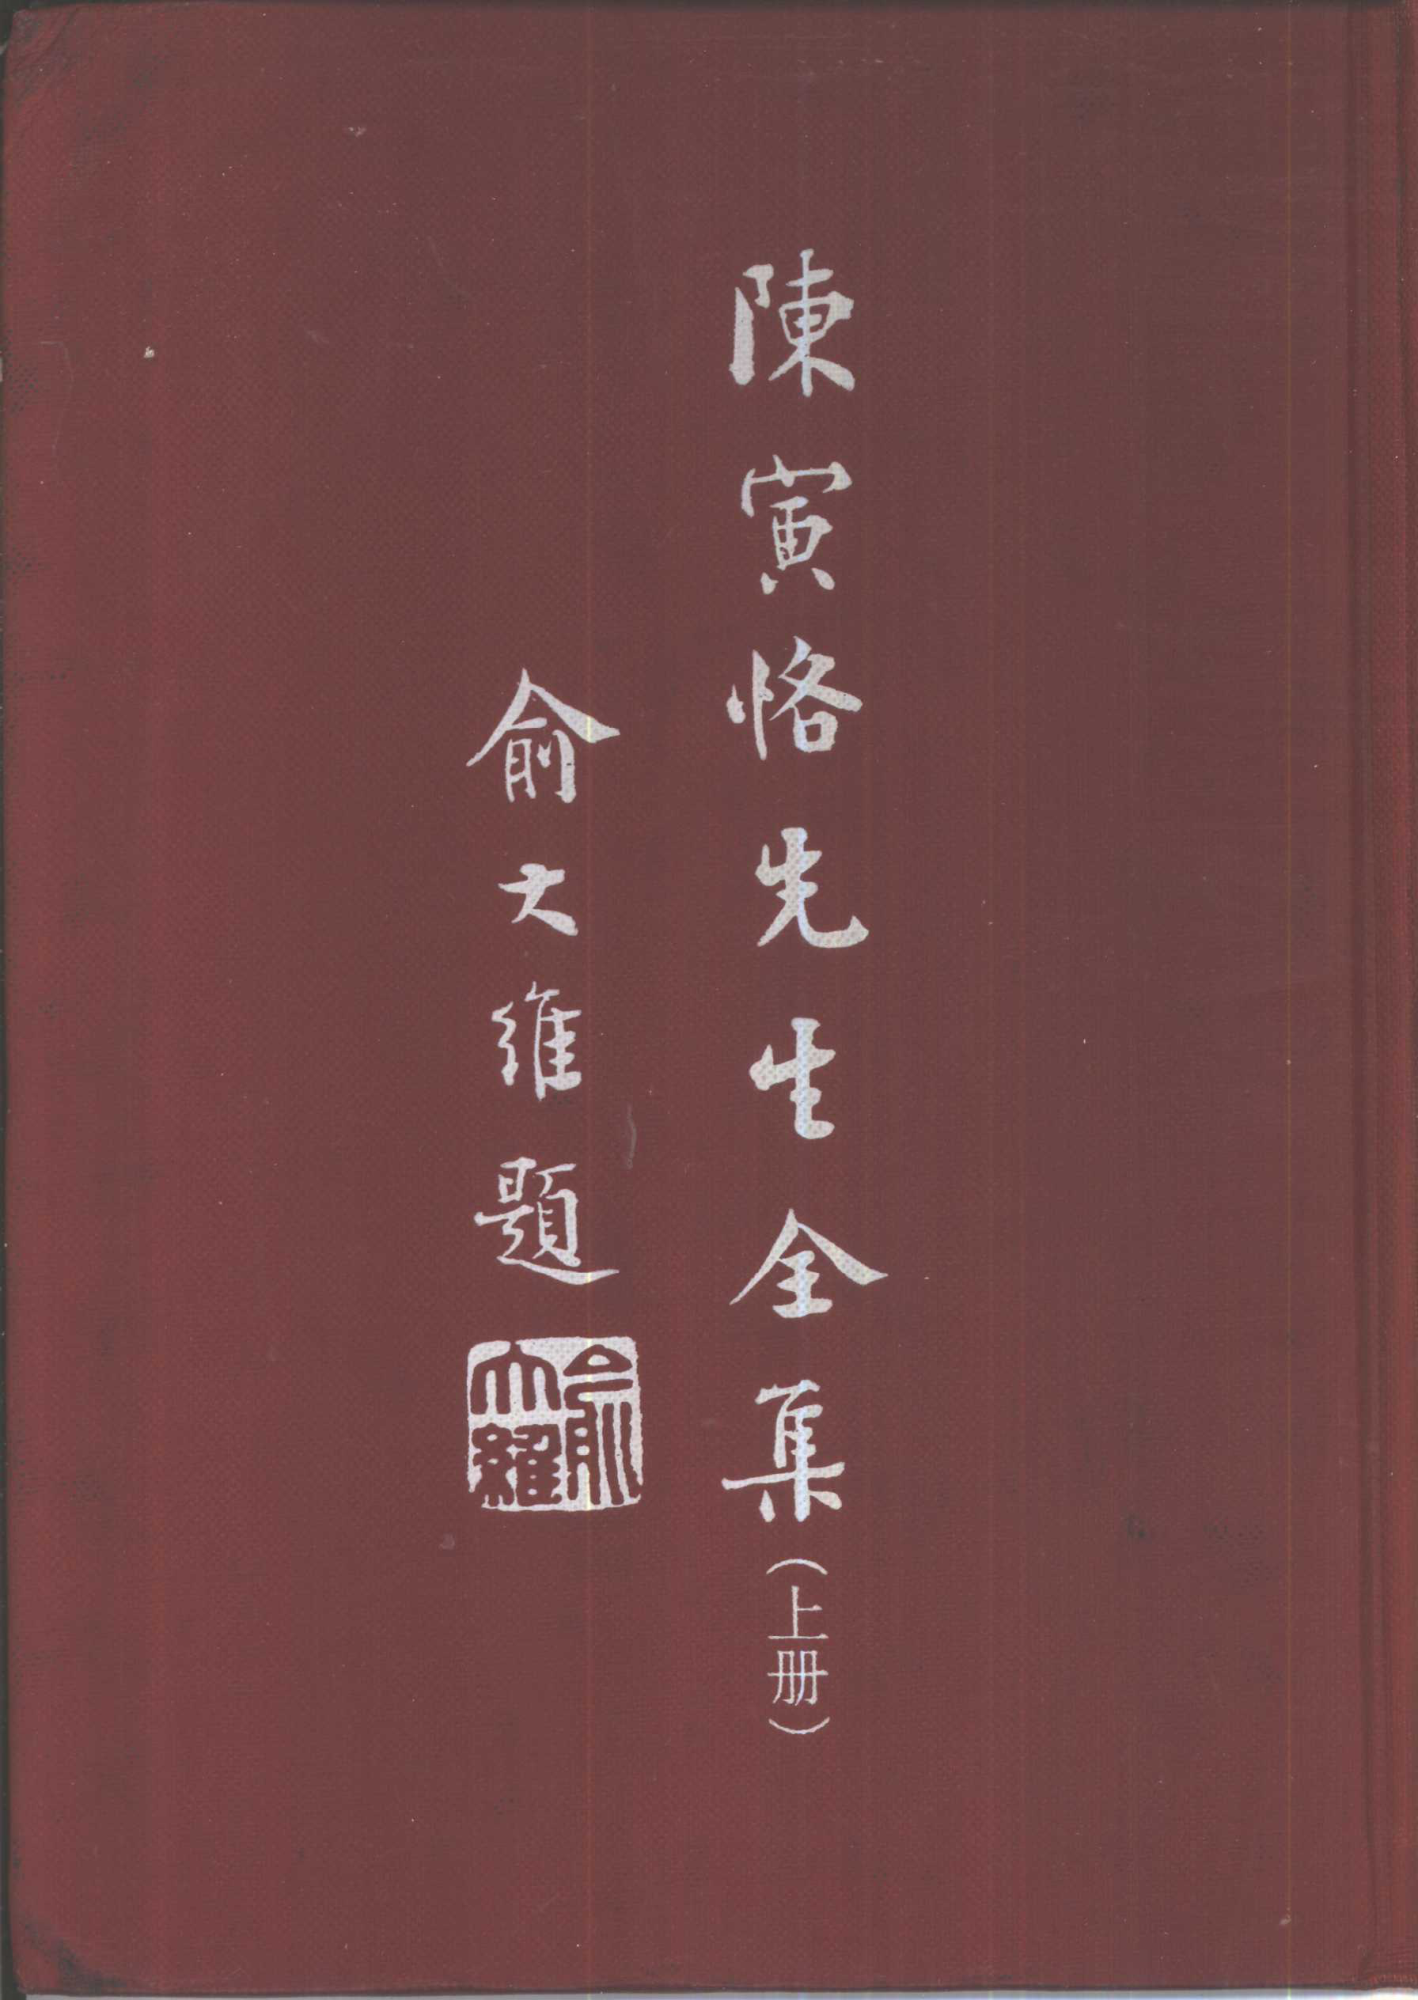 陳寅恪先生全集(上册)
俞大維題
俞大維